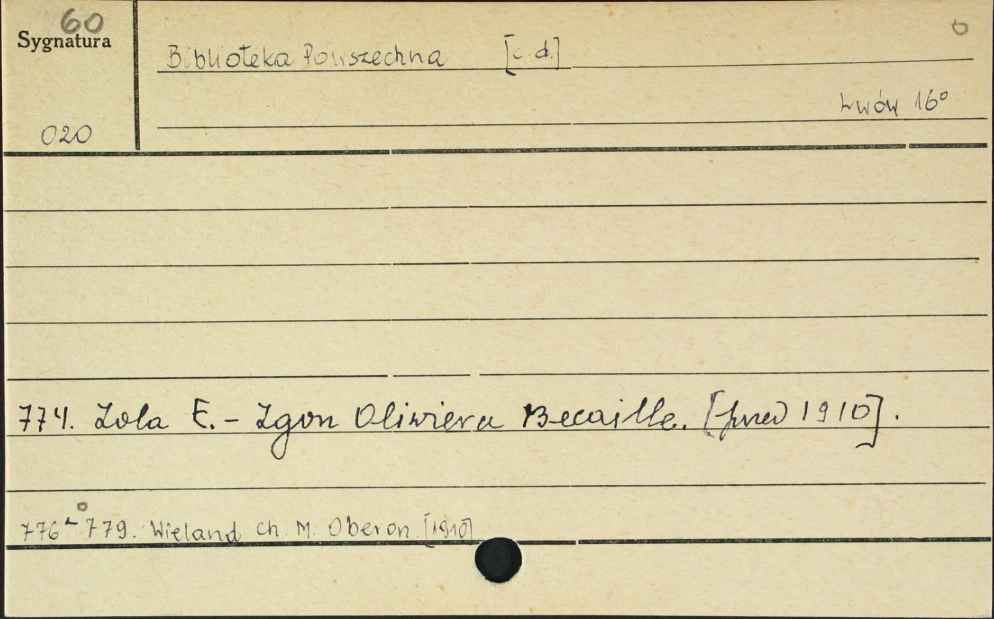 60
Sygnatura
Biblioteka Powszechna [c.d.]
Lwów 16°
020
774. Zola E. - Zgon Oliwiera Becaille. [przed 1910].
776-779. Wieland Ch. M. Oberon [1910]